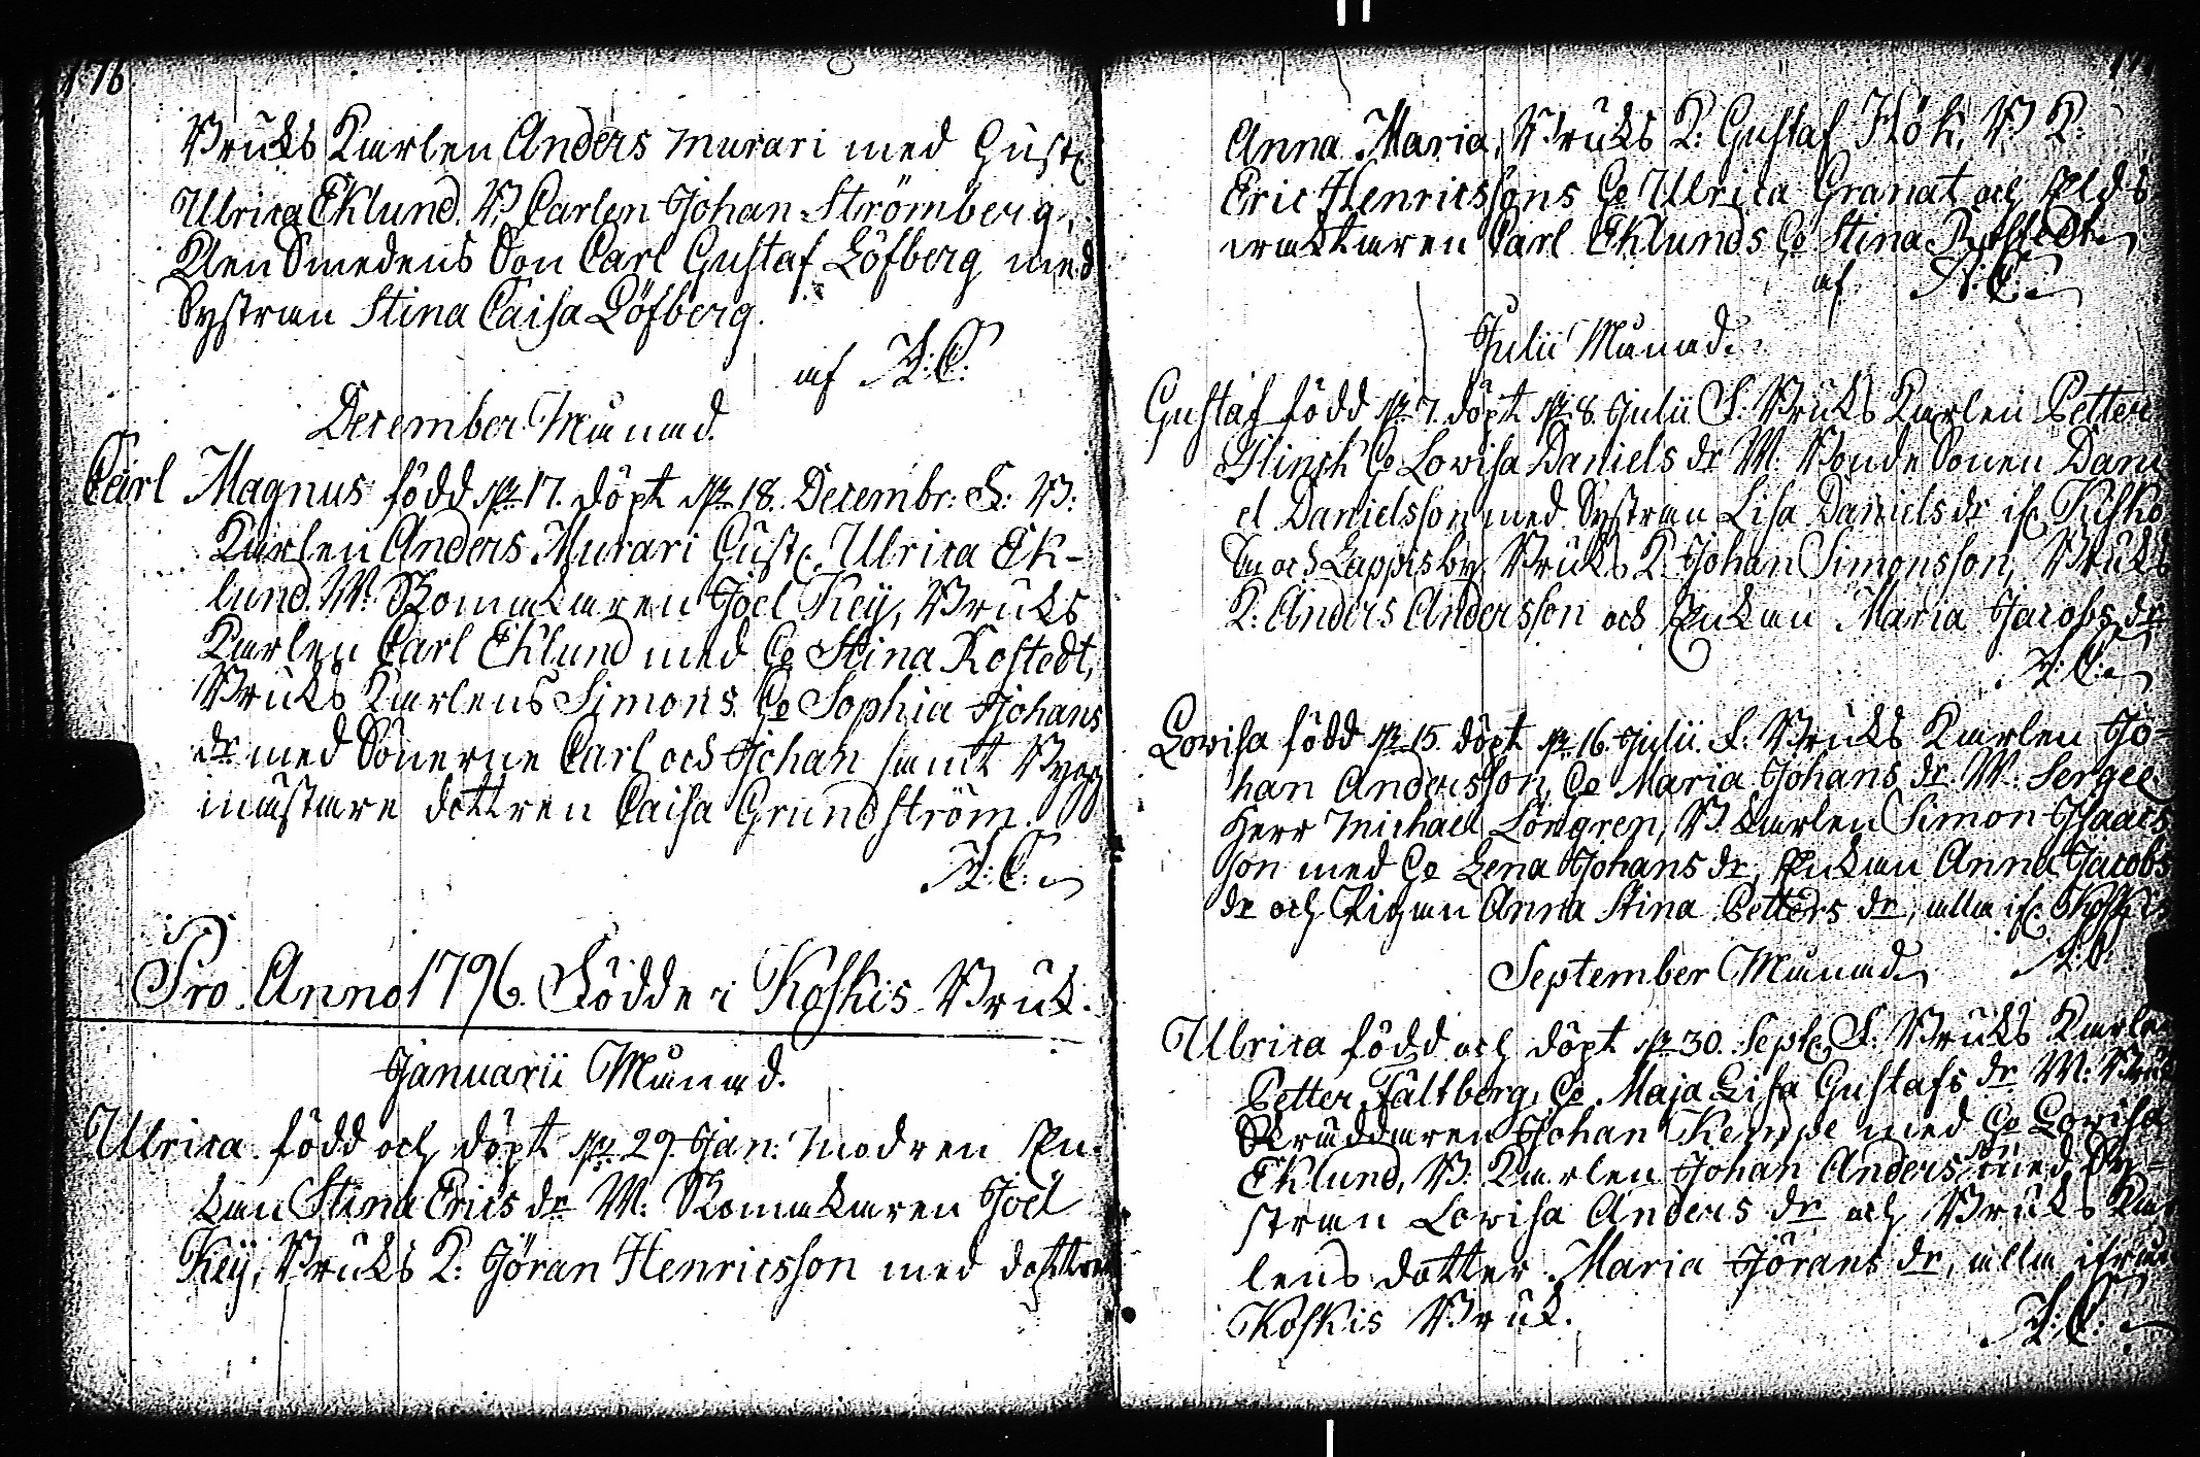 176
Bruks Karlen Anders Murari med Hust.
Ulrica Eklund. B. Carlen Johan Strömberg,
Klensmedens Son Carl Gustaf Löfberg med
Systran Stina Caisa Löfberg.
af A: C:
December Månad.
Carl Magnus född d. 17. döpt d. 18. Decembr: F: B:
Karlen Anders Murari Hust. Ulrica Ek-
lund. W: Skomakaren Joel Keÿ, Bruks
Karlen Carl Eklund med H. Stina Rostedt,
Bruks Karlens Simons H. Sophia Johans
dr med Sönerne Carl och Johan samt Bygg
mästare dottren Caisa Grundström.
A: C:
Pro Anno 1796. Födde i Koskis Bruk.
Januarii Månad.
Ulrica född och döpt d. 29. Jan: Modren En-
kan Stina Erics dr W: Skomakaren Joel
Keÿ, Bruks K: Jöran Henricsson med dottren
Anna Maria, Bruks K: Gustaf Hök, B. K:
Eric Henricssons H. Ulrica Granat och Elds
vaktaren Carl Eklunds H. Stina Rostedt
af A: C:
Julii Månad.
Gustaf född d. 7. döpt d. 8. Julii F: Bruks Karlen Petter
H. Lovisa Daniels dr W: Bonde Sonen Dani
el Danielsson med Systran Lisa Daniels dr if.
och Lappisby, Bruks K. Johan Simonsson, Bruks
K: Anders Andersson och Enkan Maria Jacobs dr
A: C:
Lovisa född d. 15. döpt d. 16. Julii. F: Bruks Karlen Jo-
han Andersson, H. Maria Johans dr W: Serge
Herr Michael Löngren, B. Karlen Simon Isaacs
son med H. Lena Johans dr, Enkan Anna Jacobs
dr och Pigan Anna Stina Petters dr, alla if. Koskis
A: C:
September Månad
Ulrica född och döpt d. 30. Sept. F: Bruks Karlen
Petter Fältberg, H. Maja Lisa Gustafs dr W: Bruks
Skräddaren Johan Kempe med H. Lovisa
Eklund, B: Karlen Johan Anders son med Sy-
stran Lovisa Anders dr och Bruks Kar
lens dotter Maria Jörans dr, alla ifrån
Koskis Bruk.
A: C: